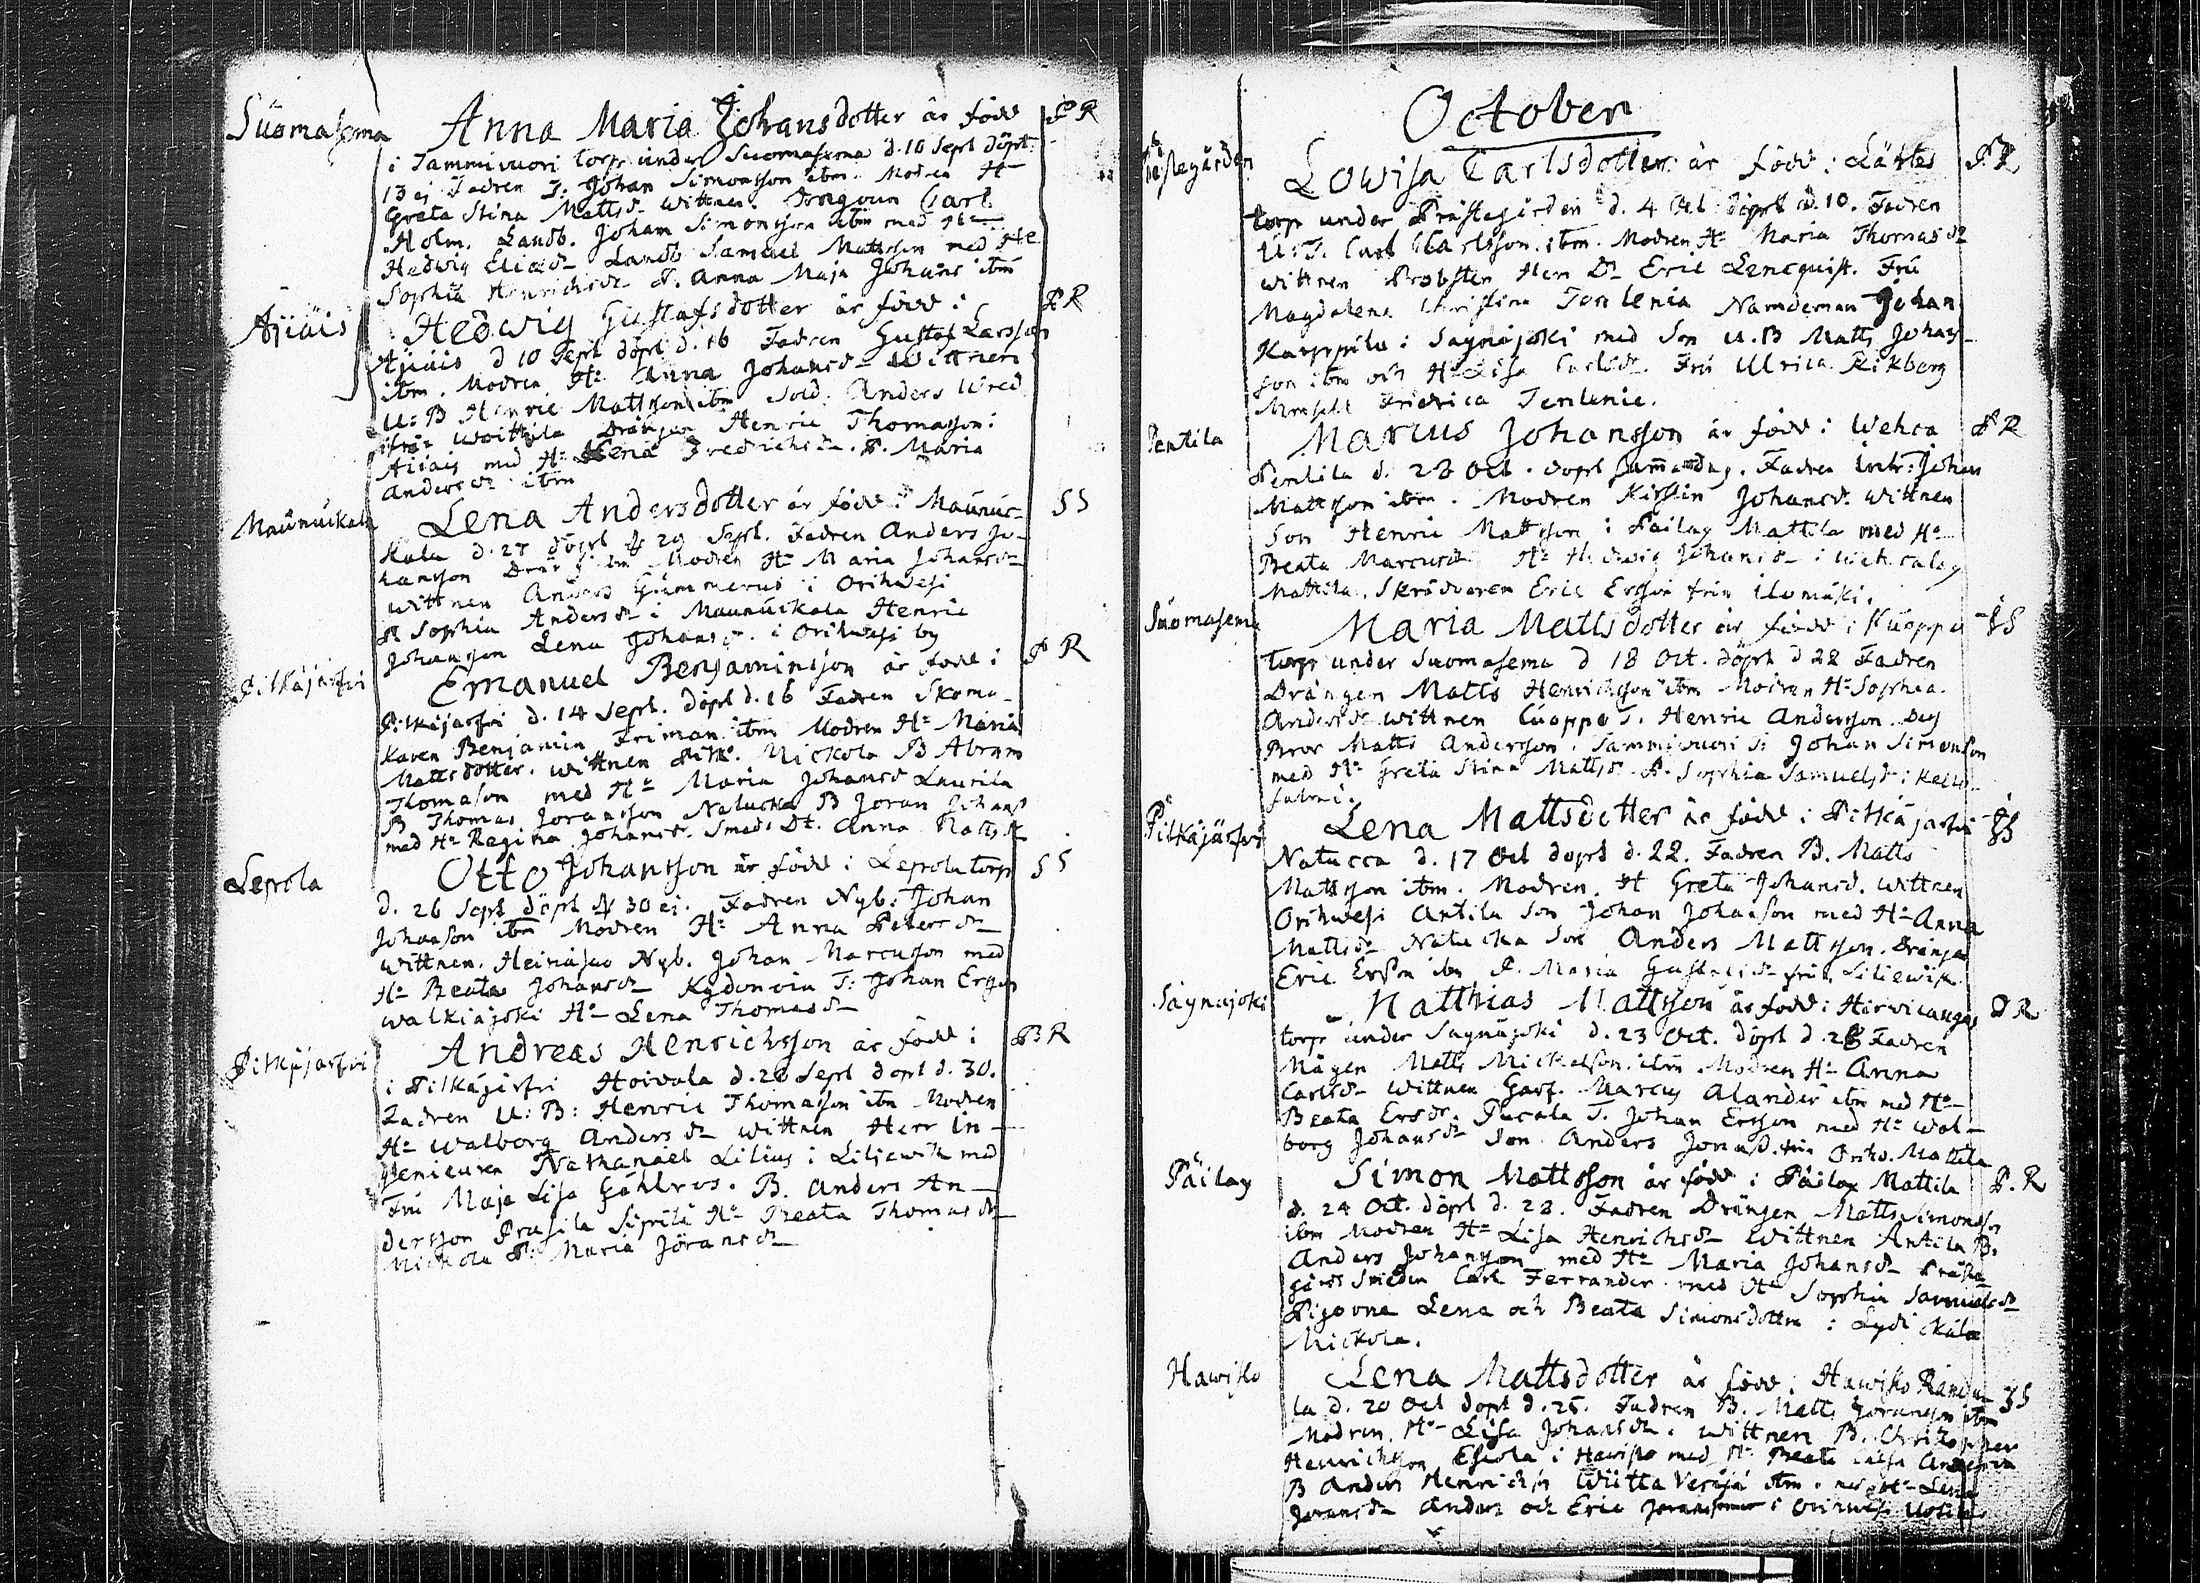 Suomasema
Anna Maria Johansdotter är född P R
i Tammivuori torp under Suomasema d. 10 Sept döpt
13 ej Fadren T. Johan Simonsson ibm. Modren H
Greta Stina Mattsdr wittnen. Dragoun Carl
Holm. Landb. Johan Simonsson ibm med H
Hedwig Eliædr Landb Samuel Mattsson med H
Sophia Henrichsdr P. Anna Maja Johans ibm
Äjiäis
Hedwig Gustafsdotter är född i P R
Äjiäis d 10 Sept döpt d. 16 Fadren Gustaf Larsson
ibm. Modren H: Anna Johansd Wittnen
U: B Henric Mattsson ibm Sold. Anders Wred
ifrån Woittila Drängen Henric Thomasson i
Äiiäis med H: Lena Fredrichsdr. P. Maria
Andersdr ibm
Maunuickala
Lena Andersdotter är född i Maunuc- S S
kala d. 27 döpt d 29 Sept. Fadren Anders Jo-
hansson Dräng ibm Modren H Maria Johansdr
wittnen Anders Gummerus i Orihwesi
P. Sophia Andersdr i Maunuickala Henric
Johansson Lena Johansd. i Orihwesi by
Pitkäjärfvi
Emanuel Benjaminsson är född i P R
Pitkäjärfvi d. 14 Sept. döpt d. 16 Fadren Skoma-
karen Benjamin Friman ibm Modren H: Maria
Mattsdotter. wittnen Pitk. Nickola B Abram
Thomason med H: Maria Johansd Laurila
B Thomas Joransson Natucka B Joran Johans
med H: Regina Johansd. Smeds Dt. Anna Mattsdr
Leprola
Otto Johansson är född i Leprola torp S S
d. 26 Sept döpt d 30 ej. Fadren Nyb: Johan
Johanson ibm Modren H: Anna Petersdr
Wittnen. Heinäsuo Nyb. Johan Marcusson med
H: Beata Johansdr Kydönvia T: Johan Ersson
walkiajoki H: Lena Thomasdr
Pitkäjärfvi
Andreas Henrichsson är född i P R
i Pitkäjärfvi Hoivala d. 28 Sept döpt d. 30.
Fadren U: B: Henric Thomasson ibm Modren
H: Walborg Andersdr wittnen Herr In-
genieuren Nathanael Lilius i Liljewik med
Fru Maja Lisa Gahlroos. B. Anders An-
dersson Prasila Siprilä H: Beata Thomasdr
Nickola P: Maria Jöransdr
October
Prästegården
Lowisa Carlsdotter är född i Lähtes P. R
torp under Prästegården d. 4 Oct döpt d. 10. Fadren
U: T. Carl Carlsson. ibm. Modren H: Maria Thomasdr
wittnen Probsten Herr Dr Eric Lencquist. Fru
Magdalena Christina Tonlenia Namdeman Johan
Karppila i Saynäjoki med Son U. B Matts Johan-
son ibm och H: Lisa Carlsdr. Fru Ulrica Rikberg
Mamsell Fridrica Tenlenie.
Pentila
Marcus Johansson är född i Wehca P R
Pentila d. 23 Oct. döpt samma dag. Fadren Inh: Johan
Mattsson ibm. Modren Kirstin Johansd. Wittnen
Son Henric Mattsson i Pailag Mattila med H:
Beata Marcusdr H: Hedwig Johansdr i Wehcalag
Mattila. Skräddaren Eric Ersson från Ilomäki.
Suomasema
Maria Mattsdotter är född i Kuoppa S S
torp under Suomasema d 18 Oct. döpt d 22 Fadren
Drängen Matts Henrichsson ibm Modren H: Sophia
Andersdr wittnen Cuoppa T. Henric Andersson. Des
Bror Matts Andersson. Tammivuori T: Johan Simonson
med H: Greta Stina Mattsdr. P. Sophia Samuelsd: i Kello
salmi.
Pitkäjärfvi
Lena Mattsdotter är född i Pitkäjarfvi S S
Natucca d. 17 Oct döpt d. 22. Fadren B. Matts
Mattsson ibm. Modren. H Greta Johansd. Wittnen
Orihwesi Antila Son Johan Johanson med H: Anna
Mattsdr Natucka Son Anders Mattsson. Drängen
Eric Ersson ibm P. Maria Gustafsdr från Liliewik
Säynäjoki
Matthias Mattsson är född i Hirvicangas P R
torp under Saynäjoki d. 23 Oct. döpt d. 28 Fadren
Mågen Matts Mickelson. ibm Modren H: Anna
Carlsdr Wittnen Garf. Marcus Alander ibm med H:
Beata Ersdr. Pucala T. Johan Ersson med H: Wal-
borg Johansdr Son Anders Jonasd. från Orihv. Mattila
Päilag
Simon Mattsson är född i Päilag Mattila P. R
d. 24 Oct. döpt d. 28. Fadren Drängen Matts Simonsson
ibm Modren H: Lisa Henrichsdr Wittnen Antila B.
Anders Johansson med H: Maria Johansdr Präste
gårds Smeden Carl Ferrander med H: Sophia Samuelsdr
Pigorna Lena och Beata Simonsdottrar i Lydickala
Mickola.
Hawisto
Lena Mattsdotter är född i Hawisto Randa S S
la d. 20 Oct döpt d. 25. Fadren B. Matts Joransson ibm
Modren. H: Lisa Johansdr. wittnen B. Christopher
Henrichsson Eskola i Hawisto med H: Beata
B Anders Henrichss Wiitta Versjä ibm. med H: Lena
Joransdr Anders och Eric Joranssöner i Orihwesi